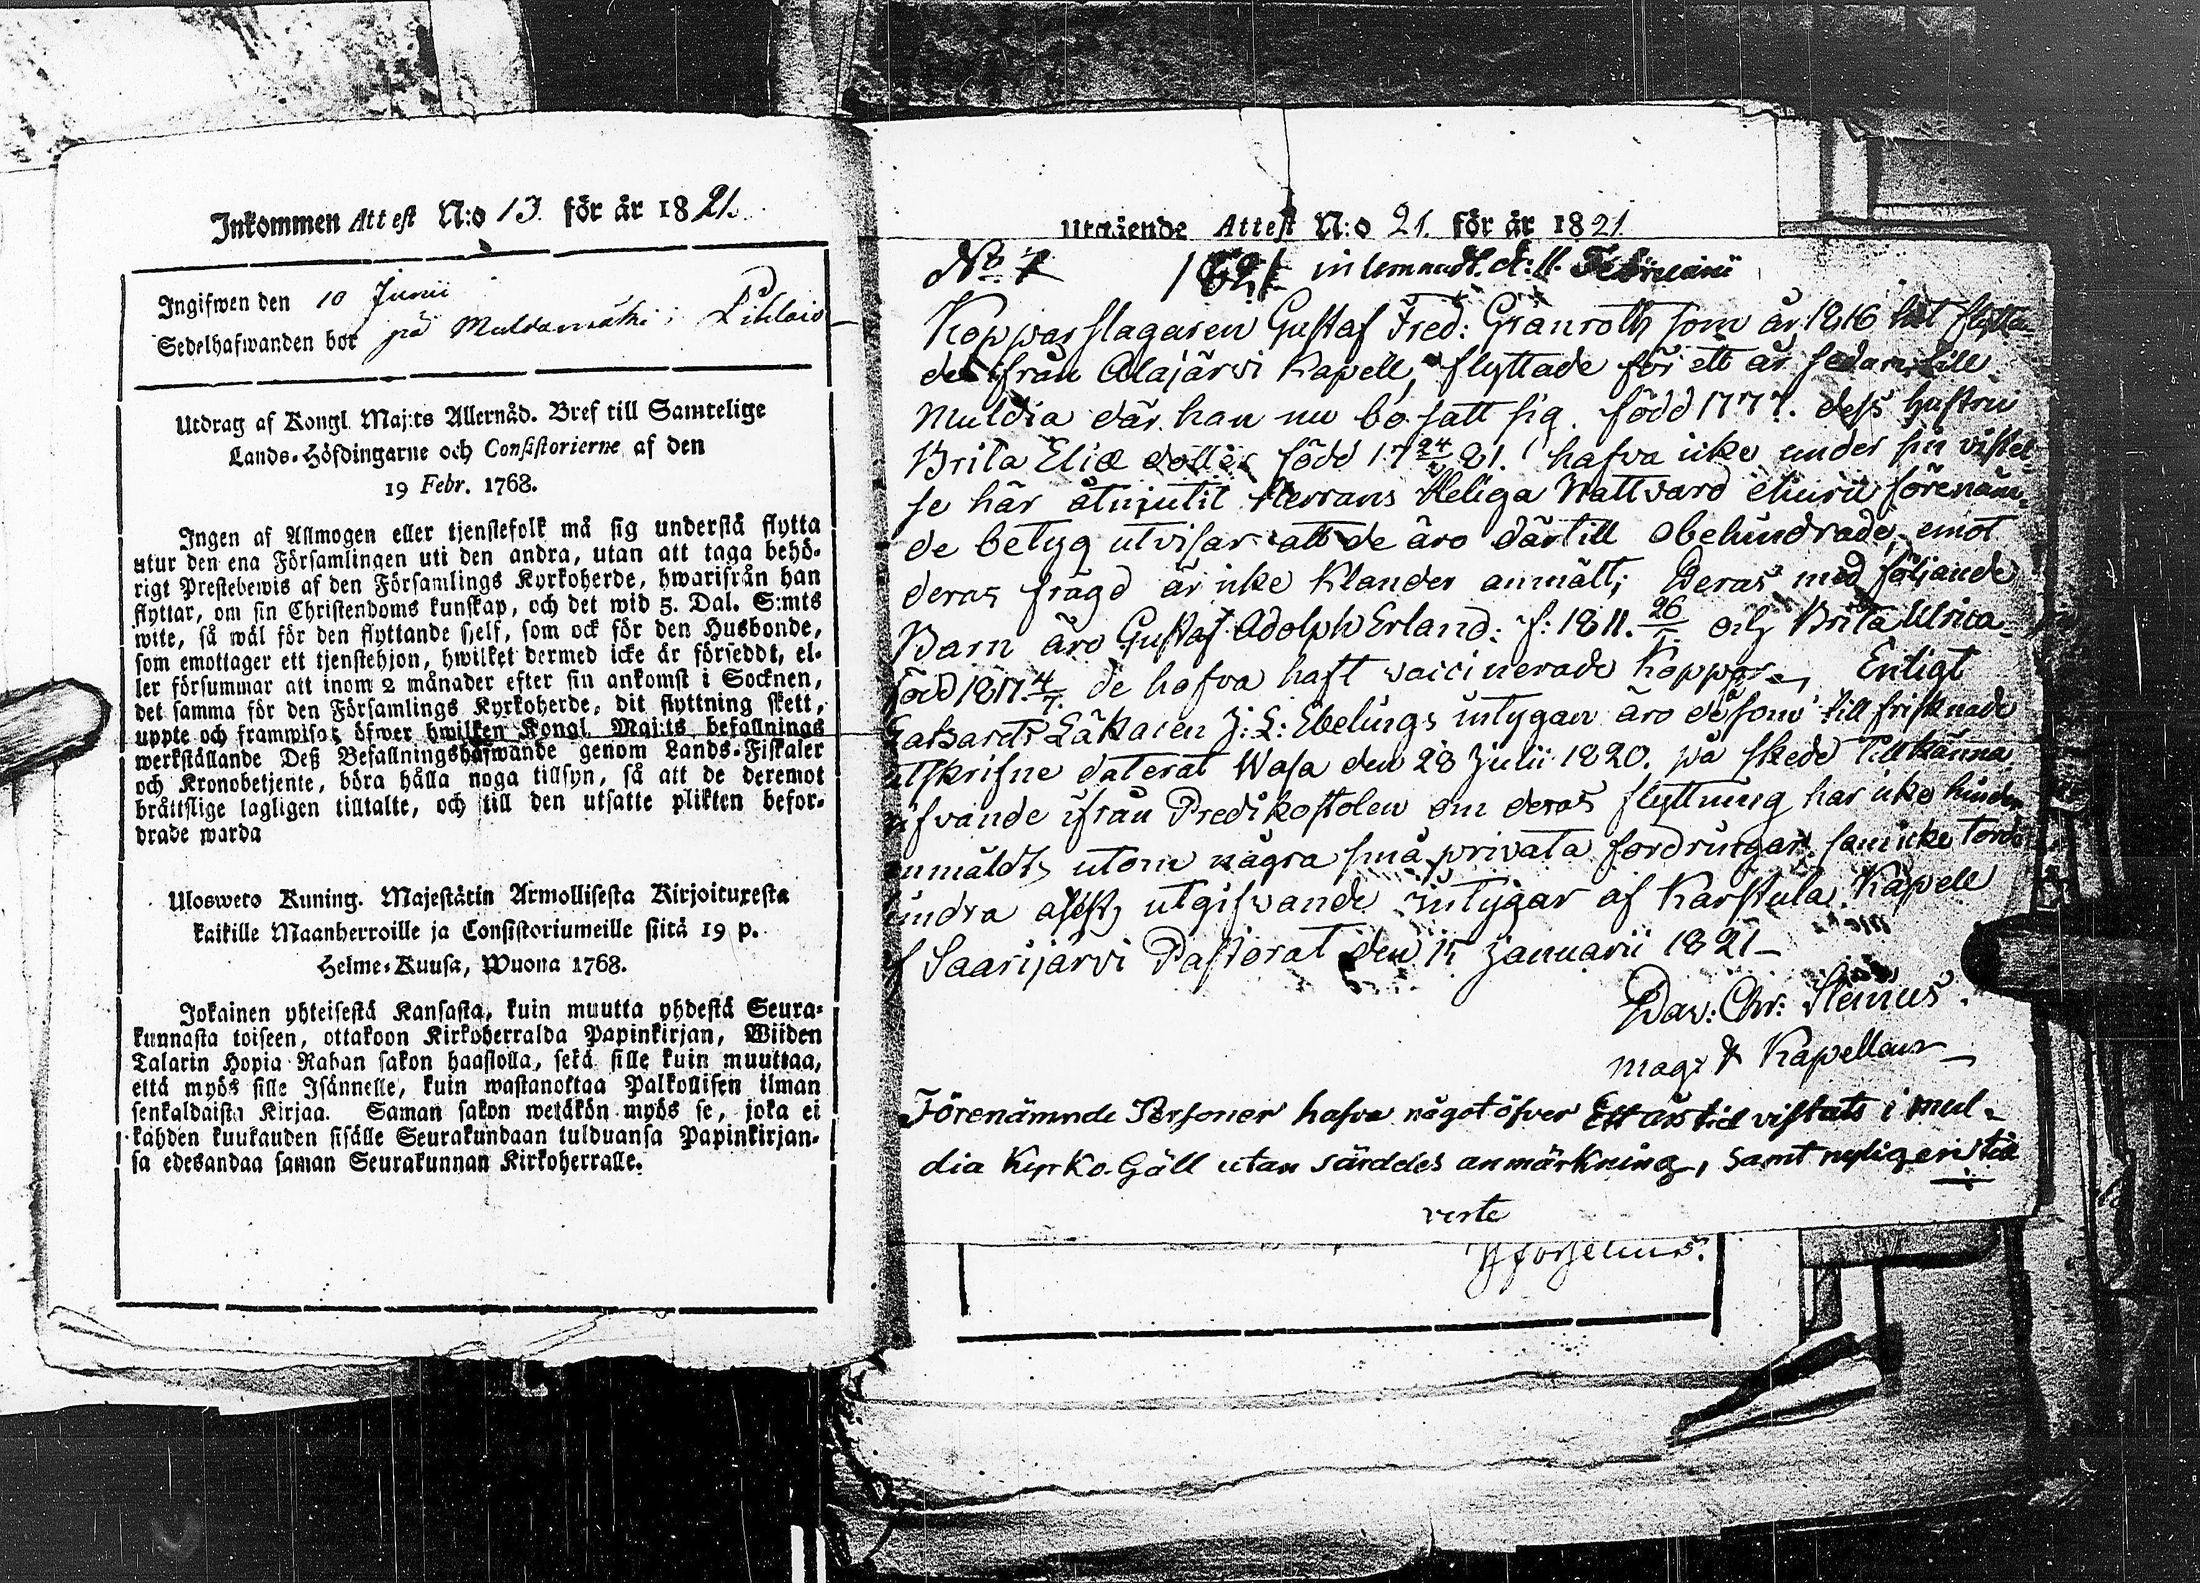 Inkommen Attest N:o 13. för år 1821.
Ingifwen den 10 Junii
Sedelhafwanden bor på Muldamäki i Pihlais
Utdrag af Kongl. Maj:ts Allernåd. Bref till Samtelige
Lands-Höfdingarne och Consistorierne af den
19 Febr. 1768.
Ingen af Allmogen eller tjenstefolk må sig understå flytta
utur den ena Församlingen uti den andra, utan att taga behö-
rigt Prestebewis af den Församlings Kyrkoherde, hwarifrån han
flyttar, om sin Christendoms kunskap, och det wid 5. Dal. S:mts
wite, så wäl för den flyttande sjelf, som ock för den Husbonde,
som emottager ett tjenstehjon, hwilket dermed icke är försedt, el-
ler försummar att inom 2 månader efter sin ankomst i Socknen,
det samma för den Församlings Kyrkoherde, dit flyttning skett,
uppte och framwisa; öfwer hwilken Kongl. Maj:ts befallnings
werkställande Deß Befallningshafwande genom Lands-Fiskaler
och Kronobetjente, böra hålla noga tillsyn, så att de deremot
bråttslige lagligen tilltalte, och till den utsatte plikten befor-
drade warda
Ulosweto Kuning. Majestätin Armollisesta Kirjoituxesta
kaikille Maanherroille ja Consistoriumeille siitä 19 p.
Helme-Kuusa, Wuona 1768.
Jokainen yhteisestä Kansasta, kuin muutta yhdestä Seura-
kunnasta toiseen, ottakoon Kirkoherralda Papinkirjan, Wiiden
Talarin Hopia Rahan sakon haastolla, sekä sille kuin muuttaa,
että myös sille Isännelle, kuin wastanottaa Palkollisen ilman
senkaldaista Kirjaa. Saman sakon wetäkön myös se, joka ei
kahden kuukauden sisälle Seurakundaan tulduansa Papinkirjan-
sa edesandaa saman Seurakunnan Kirkoherralle.
Utgående Attest N:o 21. för år 1821
No 7 1821 inlemnadt. d: 11. Februarii
Kopparslagaren Gustaf Fred: Granroth som år 1816 hit flytta-
de ifrån Alajärvi Kapell, flyttade för ett år sedan till
Muldia där han nu bo satt sig. född 1777. dess hustru
Brita Eliæ dotter född 17 24/ 81. hafva icke under sin vistel-
se här åtnjutit Herrans Heliga Nattvard ehuru förenäm-
de betyg utvisar att de äro därtill obehindrade, emot
deras frägd är icke Klander anmält; Deras med följande
Barn äro Gustaf Adolph Erland: f: 1811. 26/ och Brita Ulrica
född 1817. 4/7. de hafva haft vaccinerade Koppor. Enligt
Lasaretts Läkaren J: L: Ebelings intygan äro de som till frisknade
utskrifne daterat Wasa den 28 Julii 1820. på skede Tillkänna
ifvande ifrån Predikostolen om deras flyttning har icke hinder
anmäldts utom några små privata fordringar, som icke torde
hindra attest, utgifvande intygar af Karstula Kapell
af Saarijärvi Pastorat den 15 Januarii 1821 –
Dav: Chr: Stenius.
mag: & Kapellan
Förenämnde Personer hafva något öfver Ett års tid vistats i Mul-
dia Kyrko Gäll utan särdeles anmärkning, samt nyligen
verte